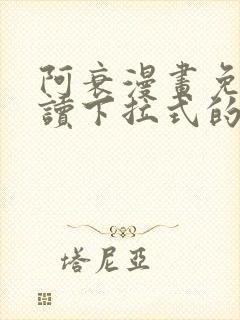 阿衰漫畫免
讀下拉式的
塔尼亞